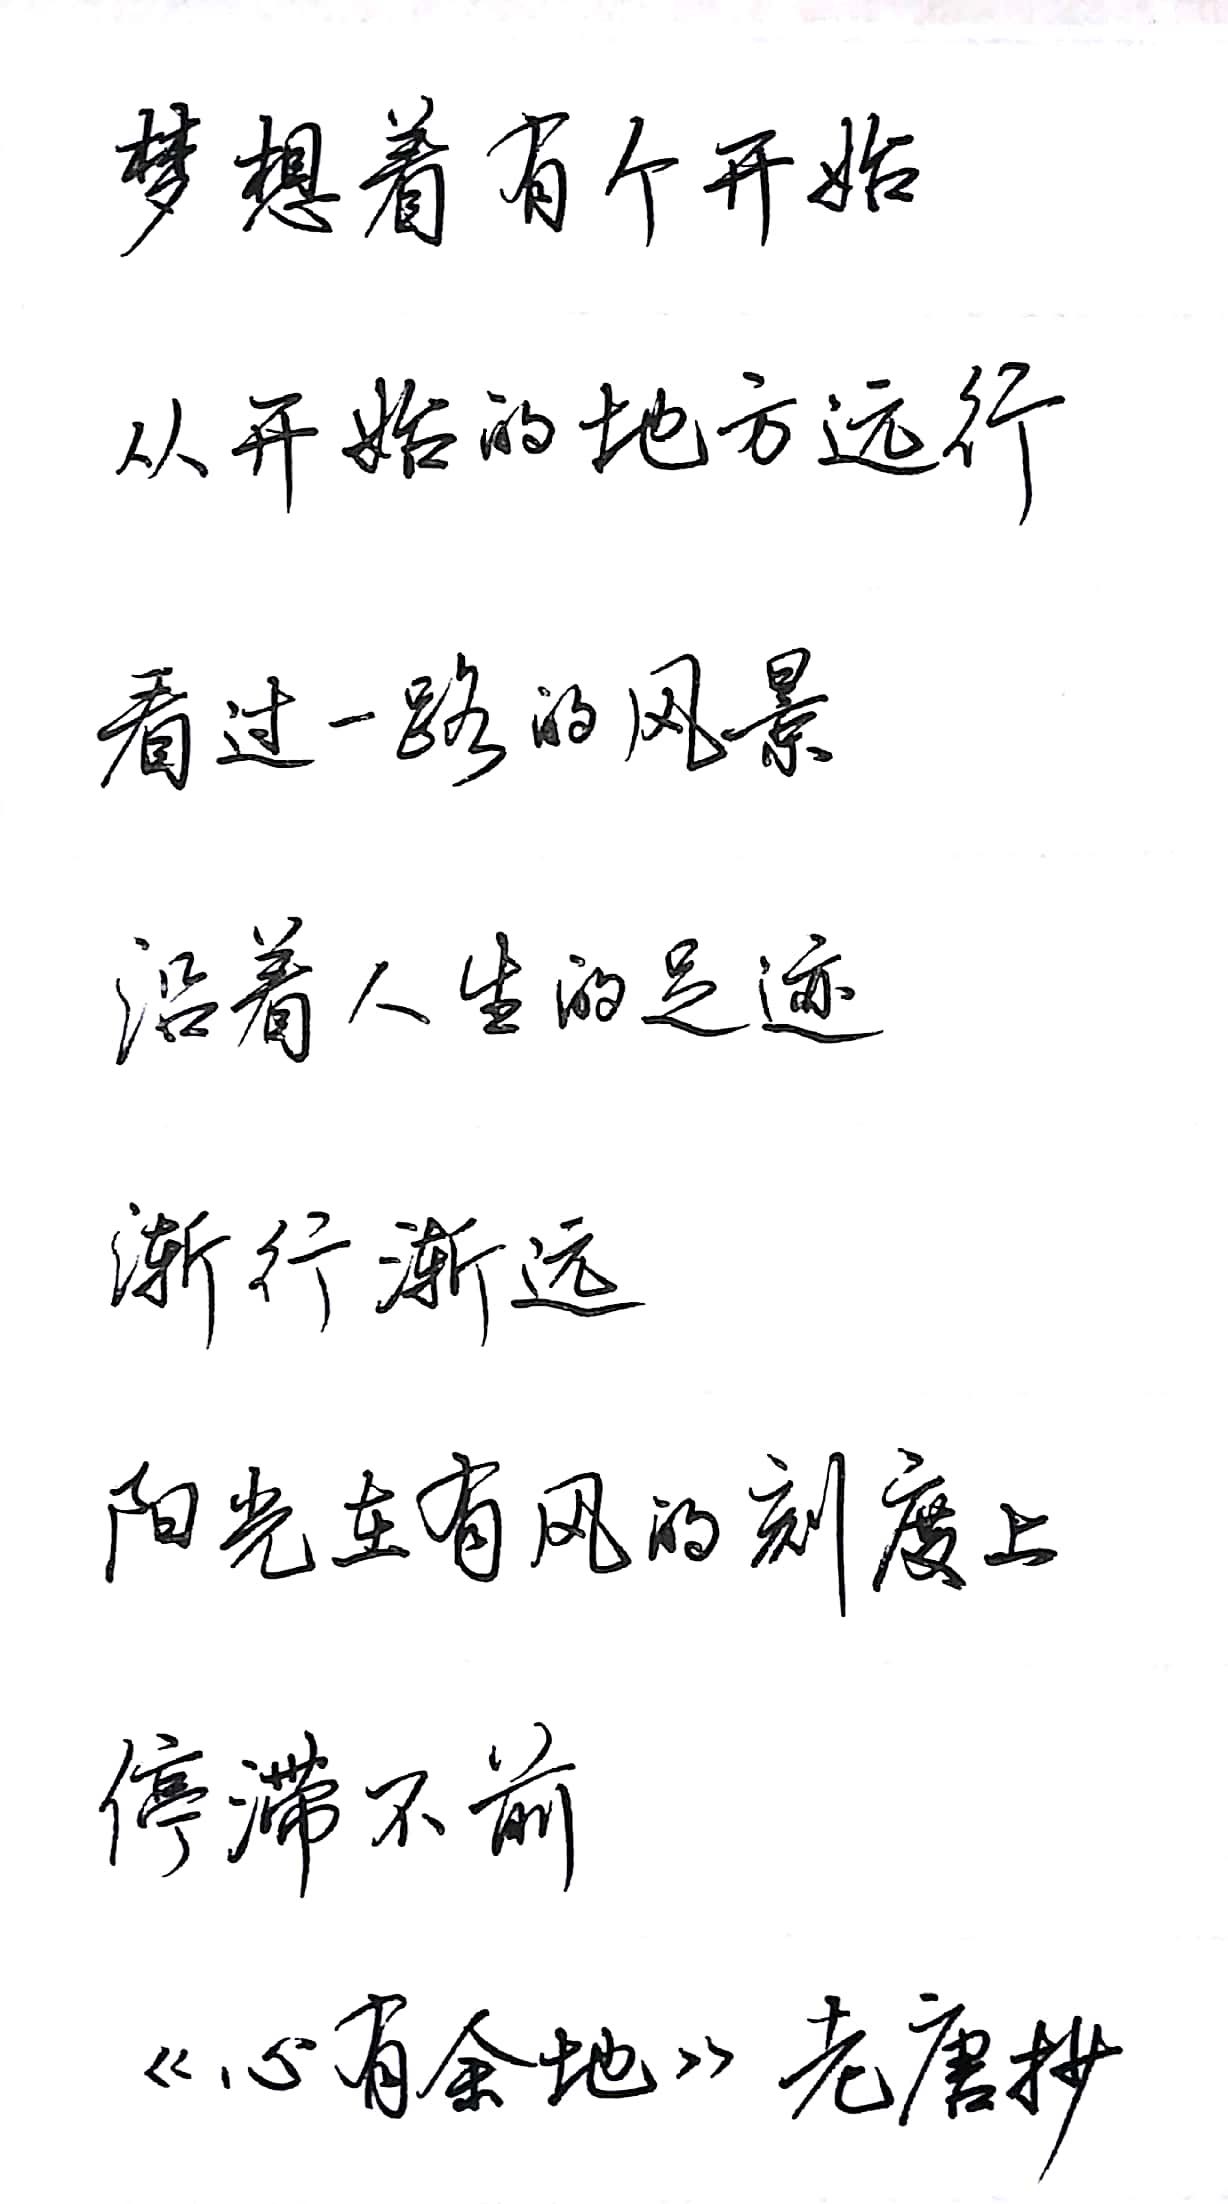 梦想着有个开始
从开始的地方远行
看过一路的风景
沿着人生的足迹
渐行渐远
阳光在有风的刻度上
停滞不前
《心有余地》老唐抄